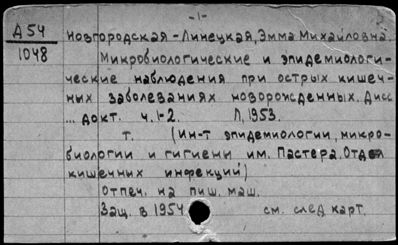 -1-
Д 54
1048
Новгородская-Линецкая, Эмма Михайловна.
Микробиологические и эпидемиологи-
ческие наблюдения при острых кишеч-
ных заболеваниях новорожденных. Дисс
... докт. ч. 1-2. Л, 1953.
т. (ин-т эпидемиологии, микро-
биологии и гигиены им. Пастера. Отдел
кишечных инфекций)
Отпеч. на пиш. маш.
Защ. в 1954
см. след карт.